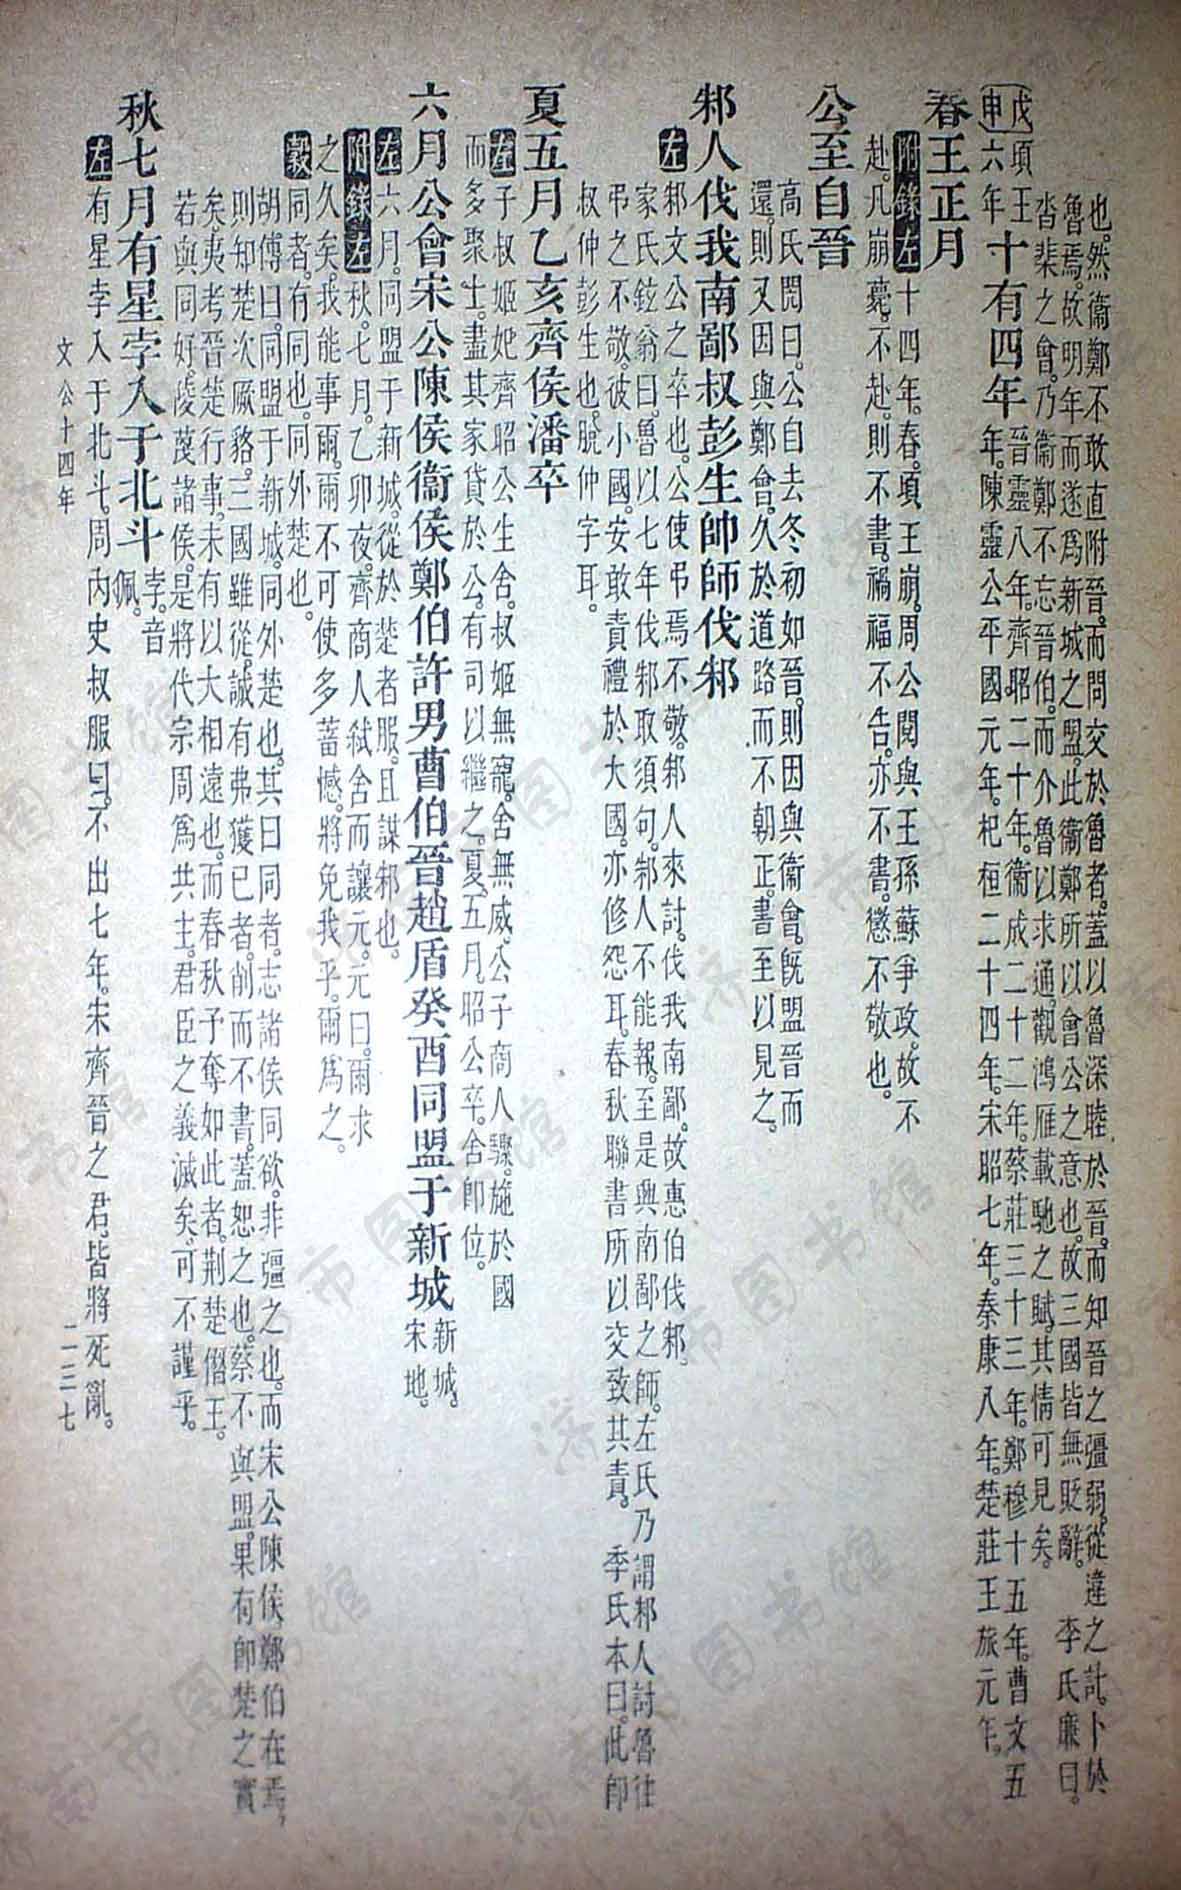 也。然衞鄭不敢直附晉。而問交於魯者。蓋以魯深睦於晉。而知晉之彊弱。從違之計。卜於
魯焉。故明年而遂爲新城之盟。此衞鄭所以會公之意也。故三國皆無貶辭。 李氏廉曰。
沓棐之會。乃衞鄭不忘晉伯。而介魯以求通。觀鴻雁載馳之賦。其情可見矣。
戊申 頃王六年 十有四年 晉靈八年。齊昭二十年。衞成二十二年。蔡莊三十三年。鄭穆十五年。曹文五
年。陳靈公平國元年。杞桓二十四年。宋昭七年。秦康八年。楚莊王旅元年。
春王正月
附錄左 十四年。春。頃王崩。周公閱與王孫蘇爭政。故不
赴。凡崩薨。不赴。則不書。禍福不告。亦不書。懲不敬也。
公至自晉
高氏閌曰。公自去冬初如晉。則因與衞會。旣盟晉而
還。則又因與鄭會。久於道路而不朝正。書至以見之。
邾人伐我南鄙叔彭生帥師伐邾
左 邾文公之卒也。公使弔焉。不敬。邾人來討。伐我南鄙。故惠伯伐邾。
家氏鉉翁曰。魯以七年伐邾取須句。邾人不能報。至是興南鄙之師。左氏乃謂邾人討魯往
弔之不敬。彼小國。安敢責禮於大國。亦修怨耳。春秋聯書。所以交致其責。 季氏本曰。此卽
叔仲彭生也。脫仲字耳。
夏五月乙亥齊侯潘卒
左 子叔姬妃齊昭公。生舍。叔姬無寵。舍無威。公子商人驟施於國
而多聚士。盡其家。貸於公。有司以繼之。夏。五月。昭公卒。舍卽位。
六月公會宋公陳侯衞侯鄭伯許男曹伯晉趙盾癸酉同盟于新城 新城。宋地。
左 六月。同盟于新城。從於楚者服。且謀邾也。
附錄左 秋。七月。乙卯夜。齊商人弒舍而讓元。元曰。爾求
之久矣。我能事爾。爾不可使多蓄憾。將免我乎。爾爲之。
穀 同者。有同也。同外楚也。
胡傳曰。同盟于新城。同外楚也。其曰同者。志諸侯同欲。非彊之也。而宋公陳侯鄭伯在焉。
則知楚次厥貉。三國雖從。誠有弗獲已者。削而不書。蓋恕之也。蔡不與盟。果有卽楚之實
矣。夷考晉楚行事。未有以大相遠也。而春秋予奪如此者。荆楚僭王。
若與同好。陵蔑諸侯。是將代宗周爲共主。君臣之義滅矣。可不謹乎。
秋七月有星孛入于北斗 孛。音佩。
左 有星孛入于北斗。周內史叔服曰。不出七年。宋齊晉之君。皆將死亂。
文公十四年 二三七